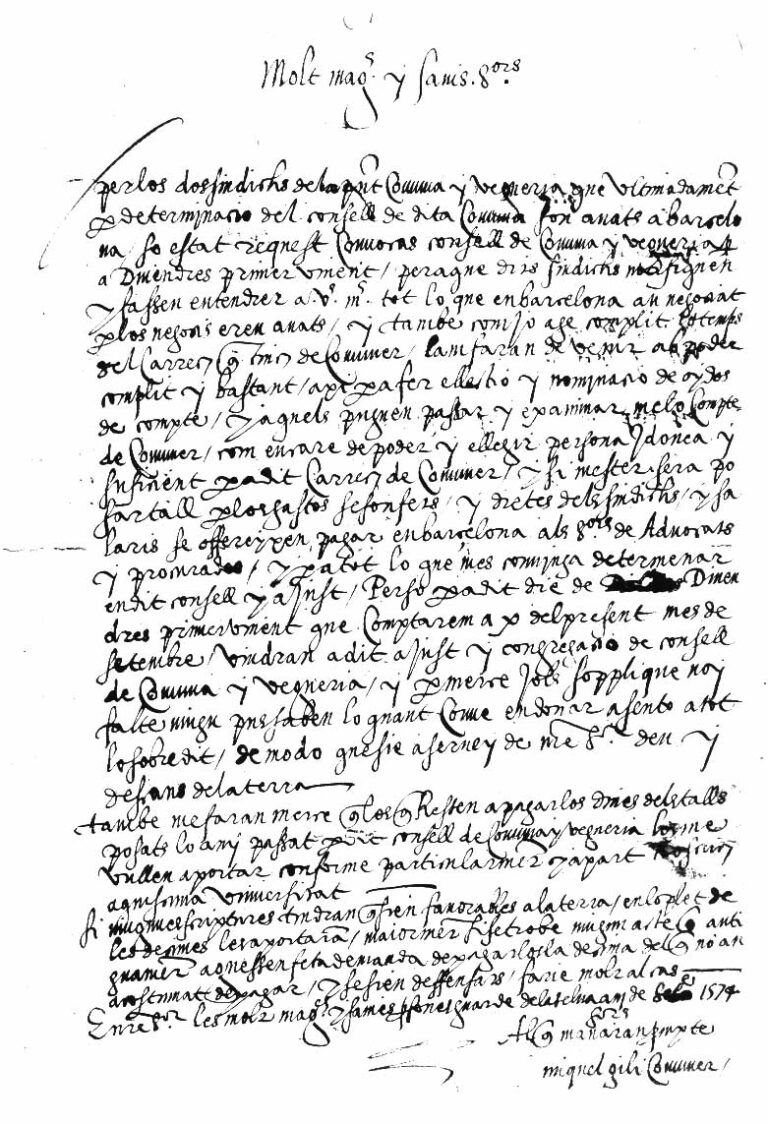 Molt mag.s y savis s.ors
per los dos sindichs de la pñt Comuna y vegueria que ultimadament
p determinacio del consell de dita Comuna son anats a barcelo
na, so estat request Convocas consell de Comuna y vegueria p
a Divendres primer vinent / peraque dits sindichs
y fassen entendrer a v.s m.s tot lo que en barcelona an negociat
p los negocis eren anats / y tambe com jo age complit lo temps
del Carrech de Comuner / lam faran de venir ab poder
complit y bastant / axi pa fer ellectio y nominacio de oydos
de compte / y aquels puguen passar y examinar me lo Compte
de Comuner / com encare de poder y ellegir persona Idonea y
suficient pa dit Carrech de Comuner / y si mester sera po
sar tall p los gastos / y dietes dels sindichs / y sa
laris se offereyxen pagar en barcelona als s.ors de Advocats
y procurados / y pa tot lo que mes convinga determenar
en dit consell y ajust / Perso pa dit die de Diven
dres primer vinent que Comptarem a x del present mes de
setembre / vindran a dit ajust y congregacio de consell
de Comuna y vegueria / y p merce Jols sopplique noy
falte ningu puss saben lo quant Conve en donar asento a tot
lo sobredit / de modo que sie a servey de nre s.r deu y
descans de la terra
tambe me faran merce q los q Resten a pagar los dines dels talls
posats lo any passat p dit consell de Comuna y vegueria los me
vullen aportar conforme particularment y apart
aquexa universitat
Si ningunes scriptures tindran q sien favorables a la terra / en lo plet de
les decimes les aportaran / maiorment si se trobe ningun acte q anti
guament aguessen feta demanda de pagar los la decima del q no an
acostumat de pagar / y se sien deffensats / farie molt al cas
E nre s.or les molt mag.s y savies guarde de la selva a de 1574
Al q manaran s.ors prompte
miquel gili Comuner /